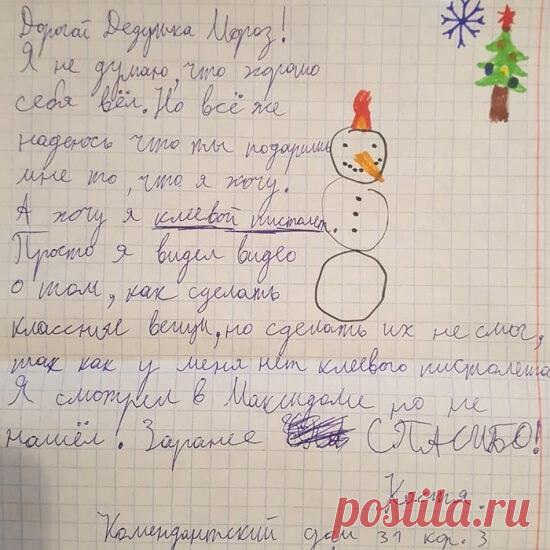 Дорогой Дедушка Мороз!
Я не думаю, что хорошо
себя вёл. Но всё же
надеюсь что ты подаришь
мне то, что я хочу.
А хочу я клеевой пистолет.
Просто я видел видео
о том, как сделать
классные вещи, но сделать их не смог,
так как у меня нет клеевого пистолета
Я смотрел в Максидоме но не
нашёл. Заранее СПАСИБО!
Костя.
Комендантский дом 31 кор. 3
postila.ru